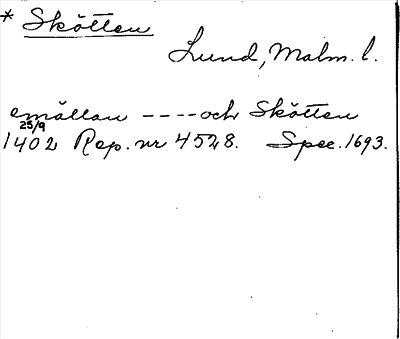 * Skötten
Lund, Malm. l.
emällan ---- och Skötten
25/9
1402 Rep. nr 4528. Spec. 1693.